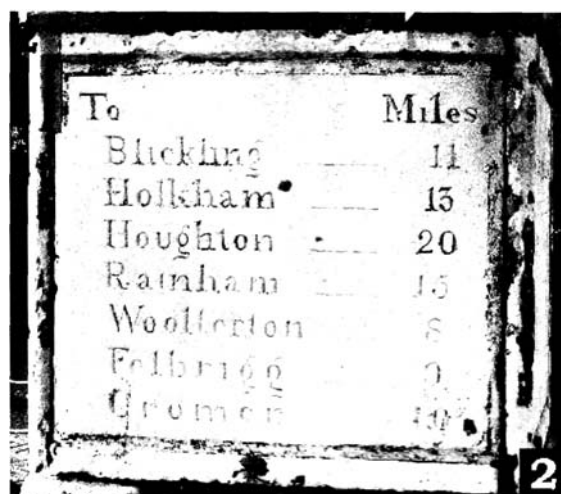 To Miles
Blickling 11
Holkham 13
Houghton 20
Rainham 15
Woollerton 8
Felbrigg 9
Cromer
2